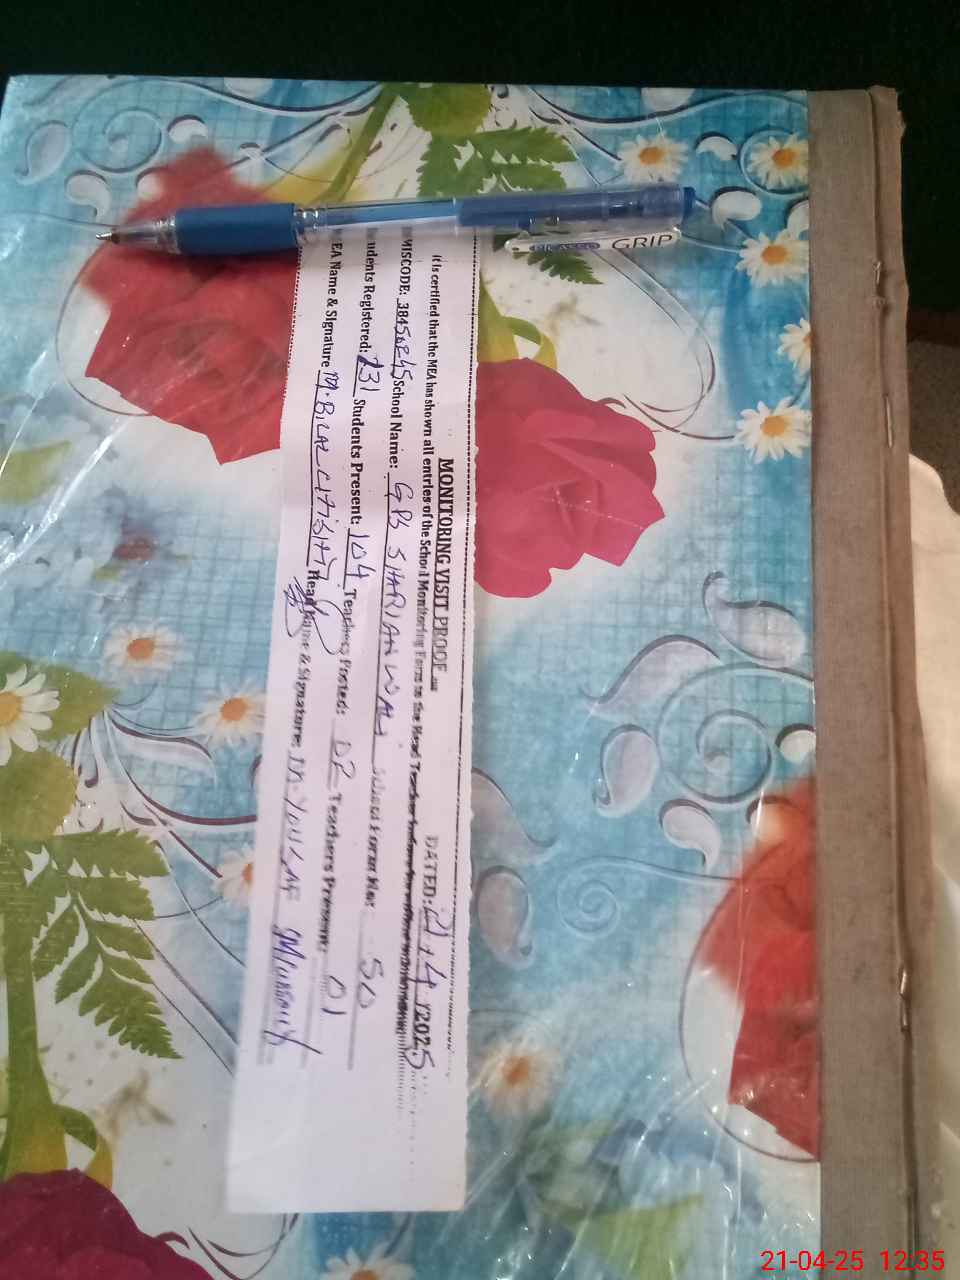 PICASSO GRIP
MONITORING VISIT PROOF
DATED: 21/4/2025
It is certified that the MEA has shown all entries of the School Monitoring Form to the Head Teacher
MISCODE: School Name: GPS SHARIANWALI School Form No: 50
udents Registered: 131 Students Present: 104 Teachers Posted: 02 Teachers Present: 01
EA Name & Signature M. BILAL CHISHTI Head Name & Signature: M. Yousaf
21-04-25 12:35